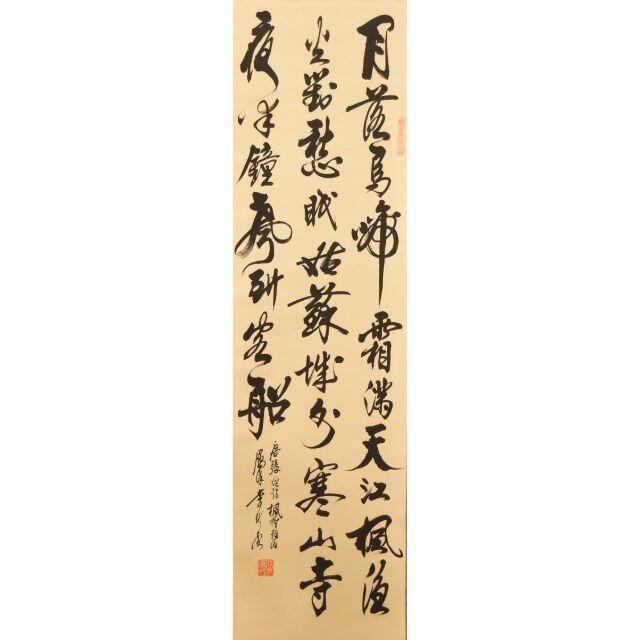 月落烏啼霜滿天江楓漁
火對愁眠姑蘇城外寒山寺
夜半鐘聲到客船
唐張繼詩楓橋夜泊